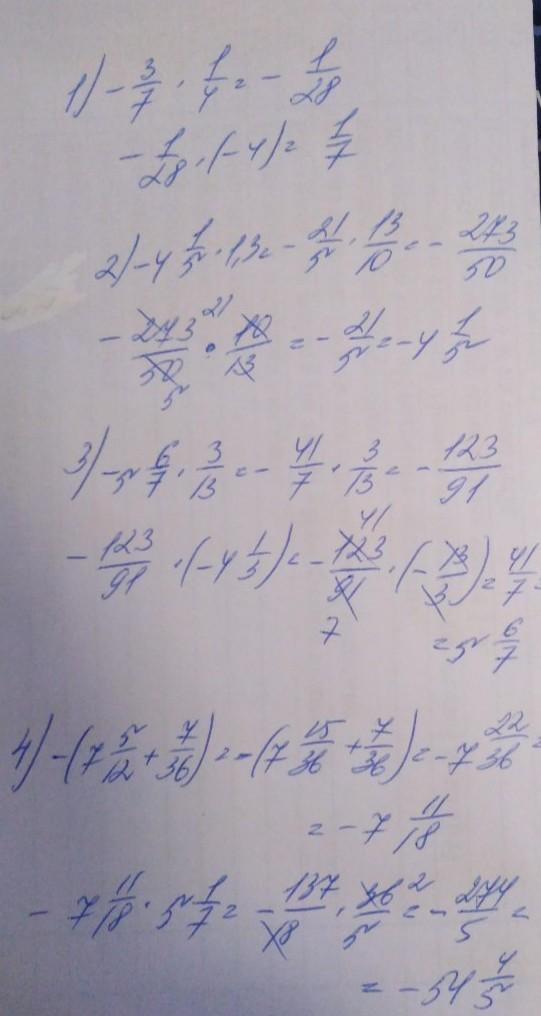 1) - 3/7 · 1/4 = - 1/28
- 1/28 · (-4) = 1/7
2) -4 1/5 · 1,3 = - 21/5 · 13/10 = - 273/50
- 273/50 · 10/13 = - 21/5 = -4 1/5
3) -5 6/7 · 3/13 = - 41/7 · 3/13 = - 123/91
- 123/91 · (-4 1/3) = - 123/91 · (- 13/3) = 41/7 =
= 5 6/7
4) -(7 5/12 + 7/36) = -(7 15/36 + 7/36) = -7 22/36 =
= -7 11/18
- 7 11/18 · 5 1/7 = - 137/18 · 36/5 = - 274/5 =
= -54 4/5